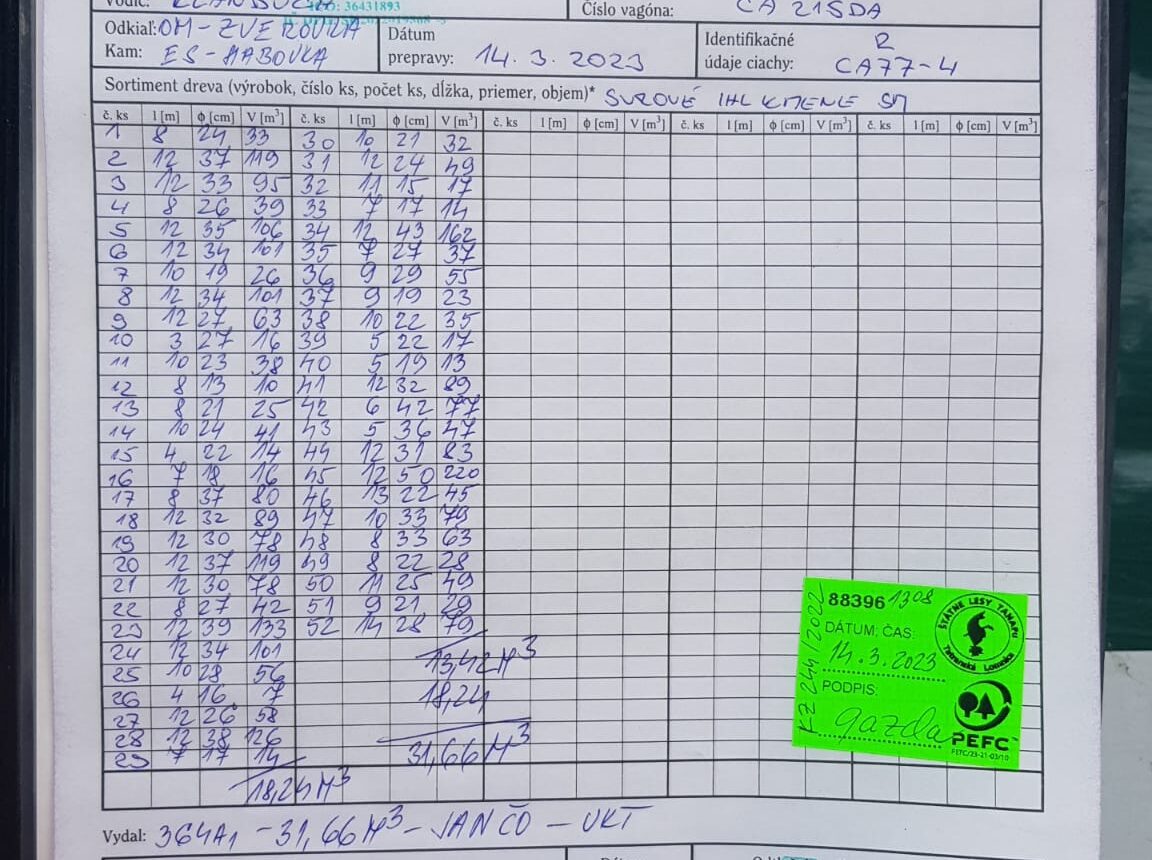 Vodič:
IČO: 36431893
Číslo vagóna: CA 215DA
Odkiaľ: OM-ZVEROVKA
Kam: ES-HABOVKA
Dátum
prepravy: 14.3.2023
Identifikačné R
údaje ciachy: CA77-4
Sortiment dreva (výrobok, číslo ks, počet ks, dĺžka, priemer, objem)* SUROVÉ IHL KMENE SM
č. ks l [m] ϕ [cm] V [m³] č. ks l [m] ϕ [cm] V [m³] č. ks l [m] ϕ [cm] V [m³] č. ks l [m] ϕ [cm] V [m³] č. ks l [m] ϕ [cm] V [m³]
1 8 24 33 30 10 21 32
2 12 37 119 31 12 24 49
3 12 33 95 32 11 15 17
4 8 26 39 33 7 17 14
5 12 35 106 34 12 43 162
6 12 34 101 35 7 27 37
7 10 19 26 36 9 29 55
8 12 34 101 37 9 19 23
9 12 27 63 38 10 22 35
10 3 27 16 39 5 22 17
11 10 23 38 40 5 19 13
12 8 13 10 41 12 32 89
13 8 21 25 42 6 42 77
14 10 24 41 43 5 36 47
15 4 22 14 44 12 31 83
16 7 18 16 45 12 50 220
17 8 37 80 46 13 22 45
18 12 32 89 47 10 33 79
19 12 30 78 48 8 33 63
20 12 37 119 49 8 22 28
21 12 30 78 50 11 25 49
22 8 27 42 51 9 21 29
23 12 39 133 52 14 28 79
24 12 34 101
13,42M³
25 10 28 56
26 4 16 7
18,24
27 12 26 58
28 12 38 126
29 7 17 14
31,66M³
18,24M³
Vydal: 364A1 - 31,66M³ - JANČO - UKT
88396 1308
DÁTUM; ČAS:
14.3.2023
PODPIS:
gazda
KZ 244/2022
ŠTÁTNE LESY TANAPU
Tatranská Lomnica
PEFC™
PEFC/23-21-03/10